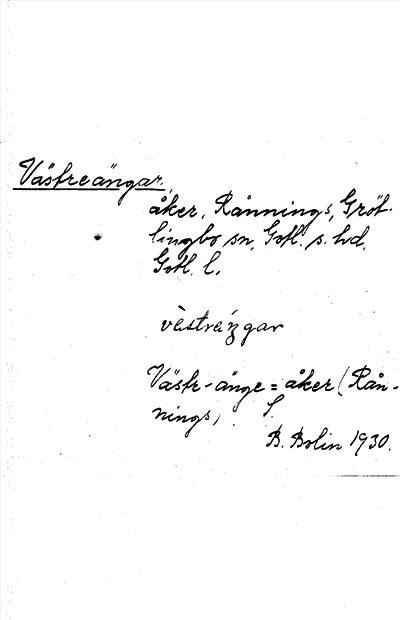 Västreängar,
åker, Rånnings, Gröt-
lingbo sn, Gotl. s. hd.
Gotl. l.
vèstrèŋgar
Västr-änge = åker (Rån-
nings)
B. Bolin 1930.